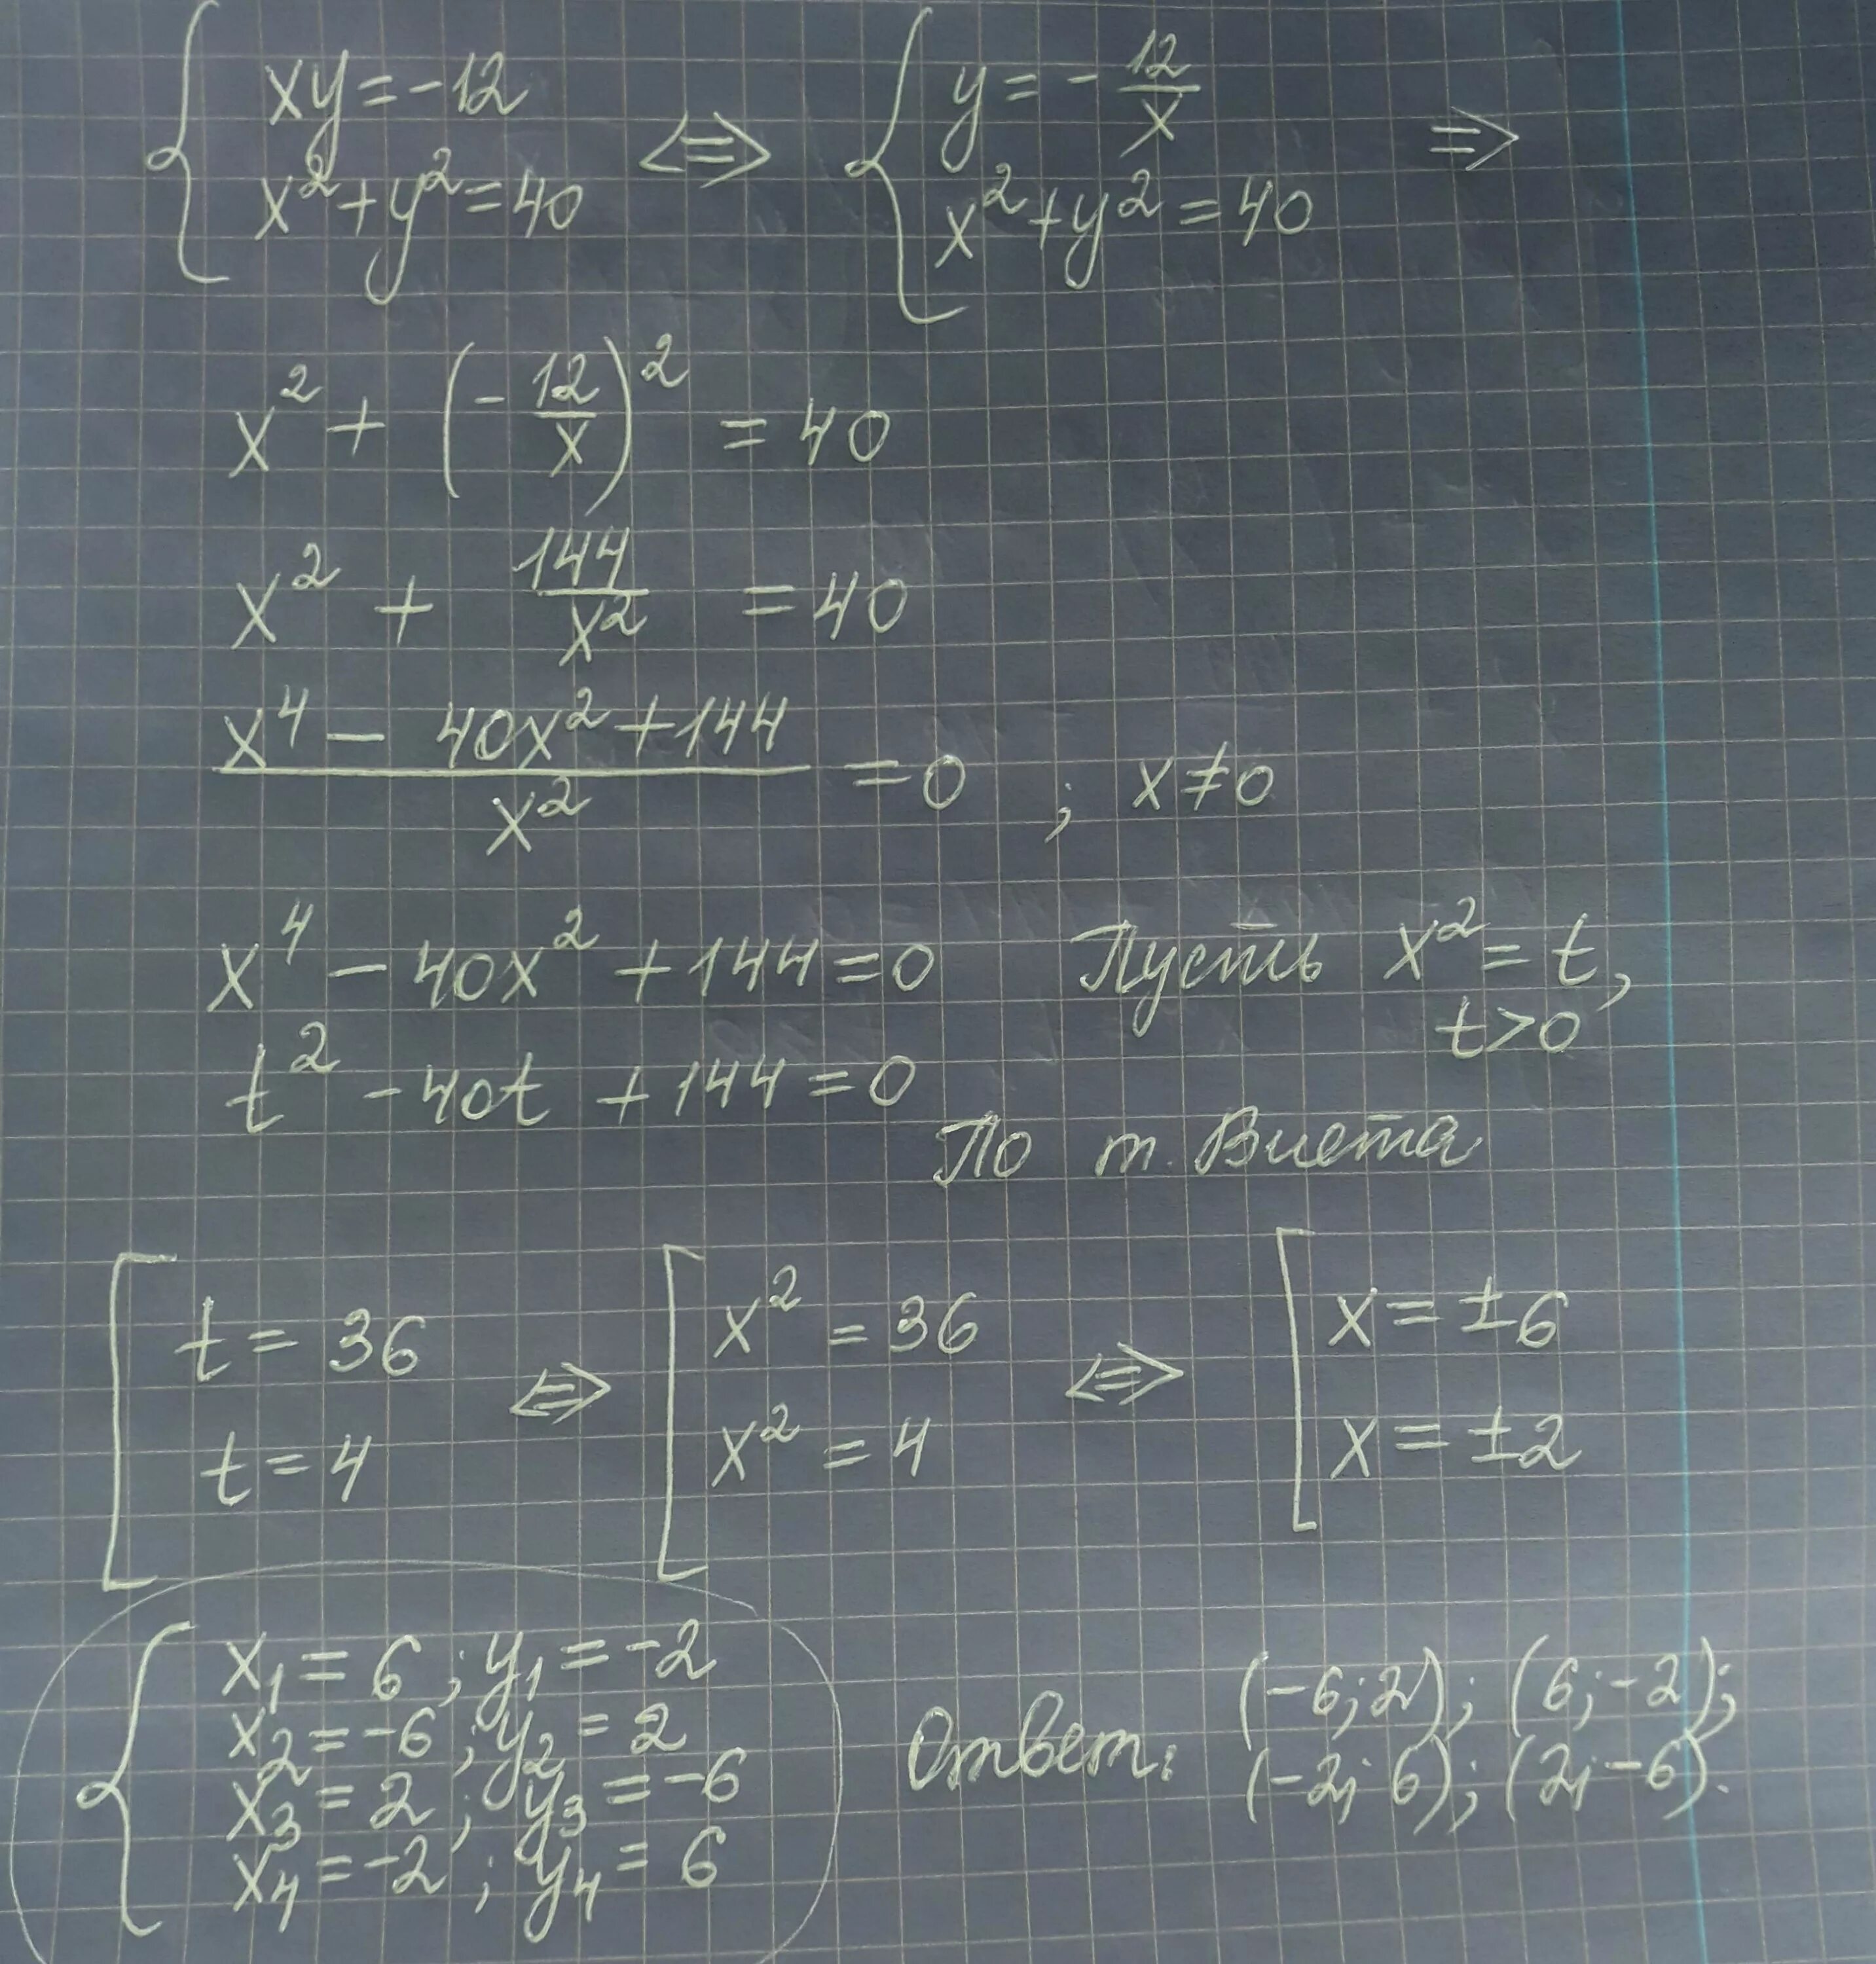 { xy = -12 <=> { y = - 12/x =>
x² + y² = 40    x² + y² = 40
x² + (- 12/x)² = 40
x² + 144/x² = 40
(x⁴ - 40x² + 144)/x² = 0 ; x ≠ 0
x⁴ - 40x² + 144 = 0 Пусть x² = t,
t > 0
t² - 40t + 144 = 0
По т. Виета
[ t = 36 <=> [ x² = 36 <=> [ x = ±6
t = 4    x² = 4    x = ±2
{ x₁ = 6 ; y₁ = -2
x₂ = -6 ; y₂ = 2
x₃ = 2 ; y₃ = -6
x₄ = -2 ; y₄ = 6
Ответ: (-6; 2); (6; -2);
(-2; 6); (2; -6).